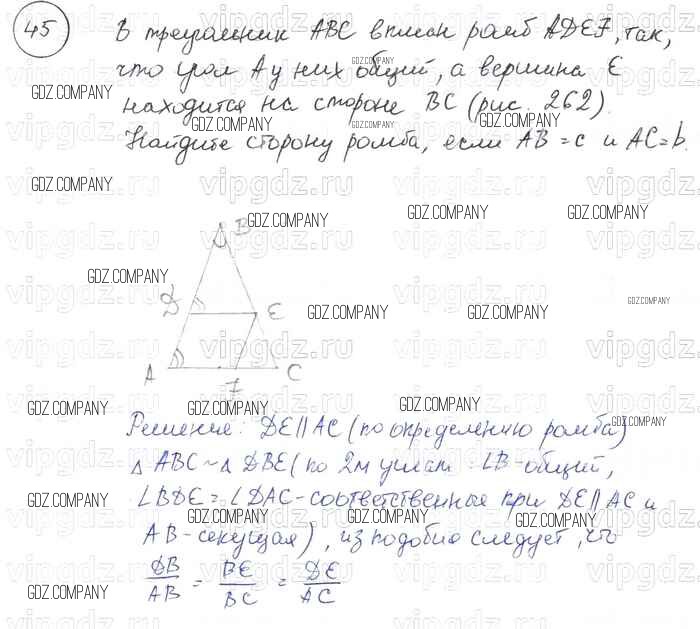 45
В треугольник ABC вписан ромб ADEF, так,
что угол A у них общий, а вершина E
находится на стороне BC (рис. 262).
Найдите сторону ромба, если AB = c и AC = b.
B
D
E
A
F
C
Решение: DE||AC (по определению ромба)
△ ABC ~ △ DBE (по 2м углам: ∠B - общий,
∠BDE = ∠DAC - соответственные при DE||AC и
AB - секущая), из подобия следует, что
DB/AB = BE/BC = DE/AC
GDZ.COMPANY
vipgdz.ru